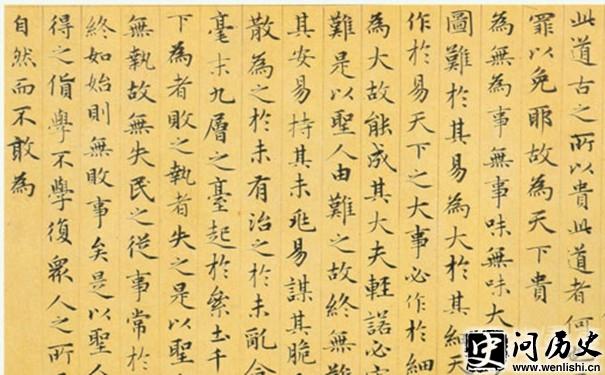 此道古之所以貴此道者何
罪以免耶故為天下貴
為無為事無事味無味大
圖難於其易為大於其細天
作於易天下之大事必作於細
為大故能成其大夫輕諾必
難是以聖人由難之故終無難
其安易持其未兆易謀其脆
散為之於未有治之於未亂
毫末九層之臺起於絫土千
下為者敗之執者失之是以聖
無執故無失民之從事常於
終如始則無敗事矣是以聖人
得之貨學不學復眾人之所
自然而不敢為
问历史
www.wenlishi.cn